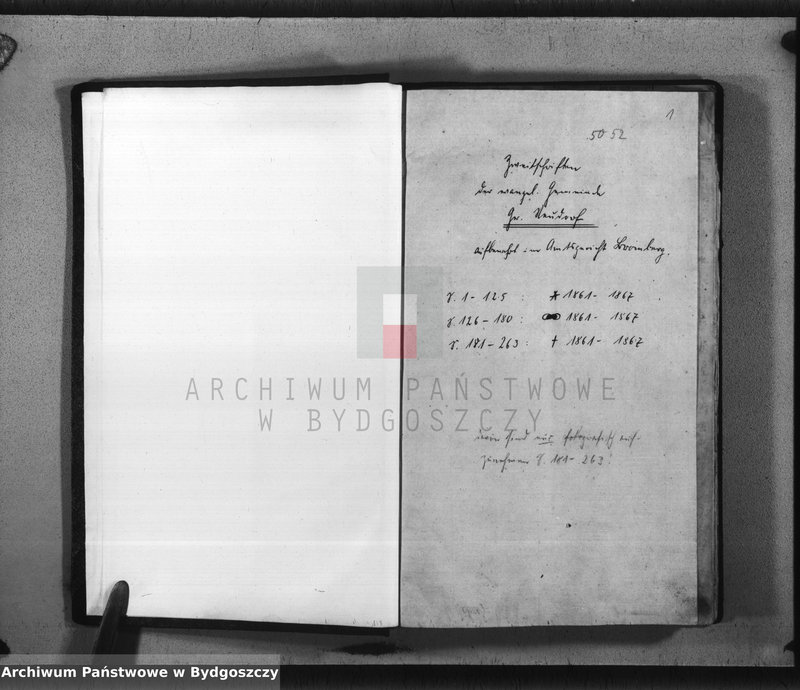 1
5052
Zweitschriften
der evangel. Gemeinde
Gr. Neudorf
aufbewahrt im Amtsgericht Bromberg.
S. 1 - 125 : * 1861 - 1867
S. 126 - 180 : ⚭ 1861 - 1867
S. 181 - 263 : † 1861 - 1867
ARCHIWUM PAŃSTWOWE
W BYDGOSZCZY
sind nur fotografisch auf-
zunehmen S. 181 - 263!
Archiwum Państwowe w Bydgoszczy